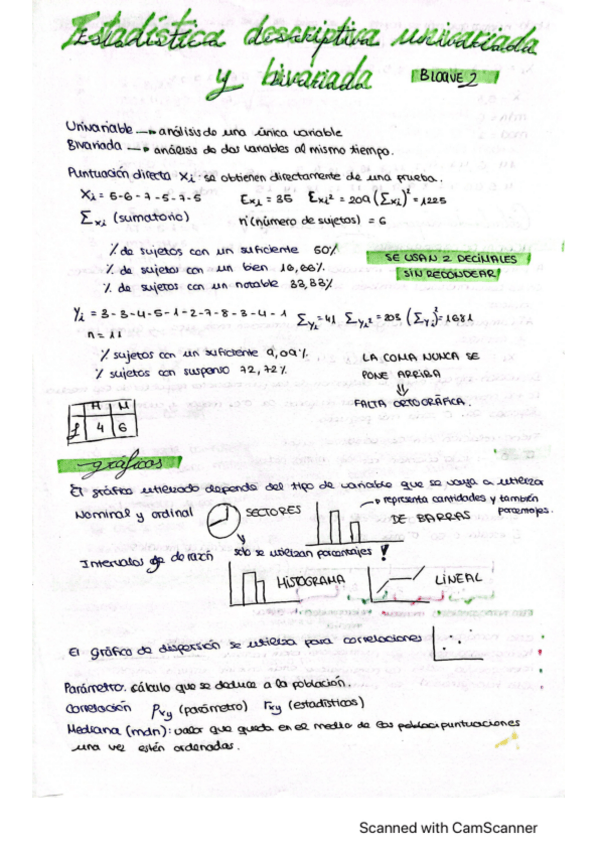 Estadística descriptiva univariada
y bivariada BLOQUE 2
Univariable → análisis de una única variable
Bivariada → análisis de dos variables al mismo tiempo.
Puntuación directa Xi: se obtienen directamente de una prueba.
Xi = 5-6-7-5-7-5 Σxi = 35 Σxi² = 209 (Σxi)² = 1225
Σxi (sumatorio) n (número de sujetos) = 6
% de sujetos con un suficiente 50%
% de sujetos con un bien 16,66%
% de sujetos con un notable 33,33%
SE USAN 2 DECIMALES
SIN REDONDEAR
Yi = 3-3-4-5-1-2-7-8-3-4-1 Σyi = 41 Σyi² = 203 (Σyi)² = 1681
n = 11
% sujetos con un suficiente 9,09%
% sujetos con suspenso 72,72%
LA COMA NUNCA SE
PONE ARRIBA
⇓
FALTA ORTOGRÁFICA.
H M
f 4 6
gráficos
El gráfico utilizado depende del tipo de variable que se vaya a utilizar
Nominal y ordinal SECTORES DE BARRAS
→ representa cantidades y también porcentajes.
solo se utilizan porcentajes!
Intervalos de razón HISTOGRAMA LINEAL
El gráfico de dispersión se utiliza para correlaciones
Parámetro: cálculo que se deduce a la población.
Correlación ρxy (parámetro) rxy (estadísticos)
Mediana (mdn): valor que queda en el medio de las puntuaciones
una vez estén ordenadas.
Scanned with CamScanner